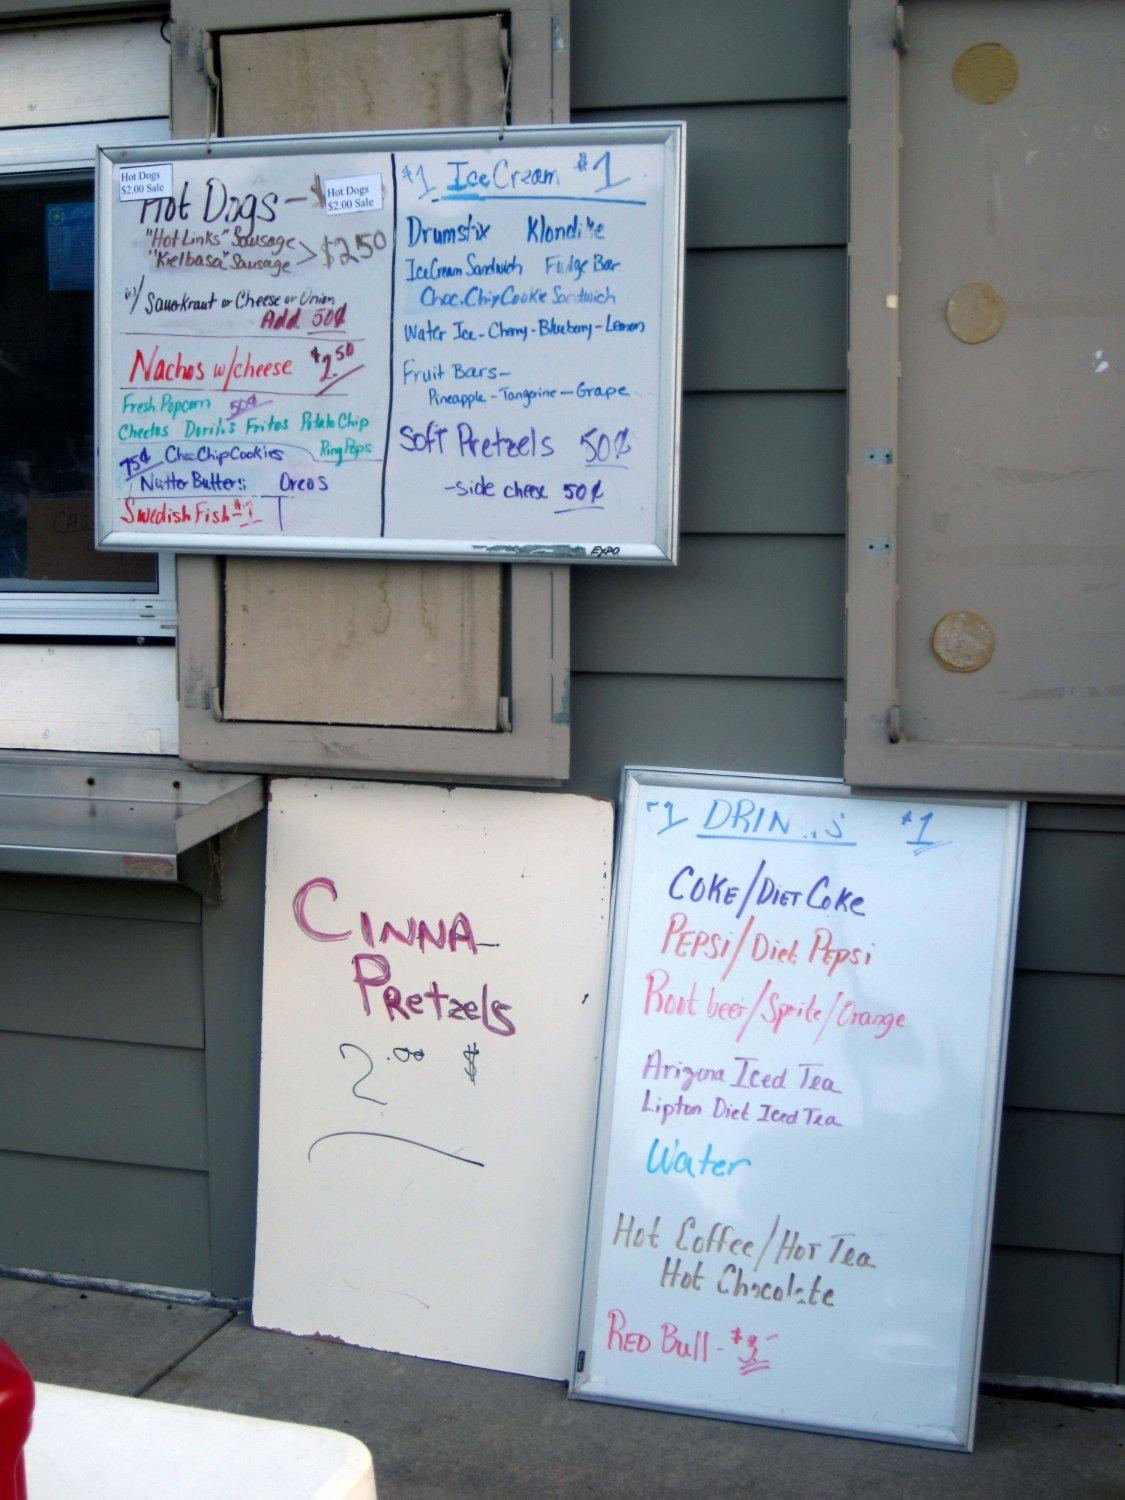 Hot Dogs
$2.00 Sale
Hot Dogs
$2.00 Sale
Hot Dogs - $
"Hot Links" Sausage
"Kielbasa" Sausage > $2.50
w/ Sauerkraut or Cheese or Onion
Add 50¢
Nachos w/cheese $2.50
Fresh Popcorn 50¢
Cheetos Doritos Fritos Potato Chip
Ring Pops
75¢ Choc.Chip Cookies
Nutter Butters Oreos
Swedish Fish - $1
$1 Ice Cream $1
Drumstix Klondike
Ice Cream Sandwich Fudge Bar
Choc.Chip Cookie Sandwich
Water Ice - Cherry - Blueberry - Lemon
Fruit Bars -
Pineapple - Tangerine - Grape
Soft Pretzels 50¢
- side cheese 50¢
EXPO
CINNA
Pretzels
2.00 $
$1 DRINKS $1
COKE/DIET COKE
PEPSI/Diet Pepsi
Root beer/Sprite/Orange
Arizona Iced Tea
Lipton Diet Iced Tea
Water
Hot Coffee/Hot Tea
Hot Chocolate
RED Bull - $3-